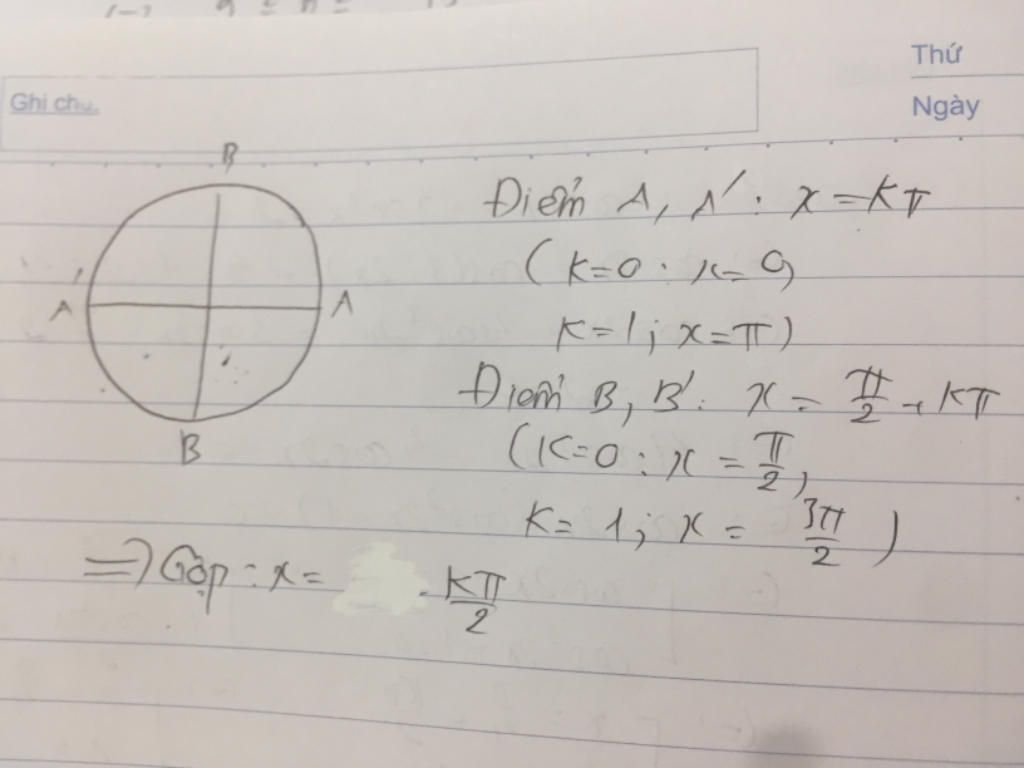 Thứ
Ghi chú.
Ngày
B
Điểm A, A' : x = kπ
(k=0 : x= 0,
A' A
k=1 ; x=π)
Điểm B, B' : x = π/2 + kπ
B
(k=0 : x = π/2,
k= 1 ; x = 3π/2 )
=> Gộp : x = kπ/2